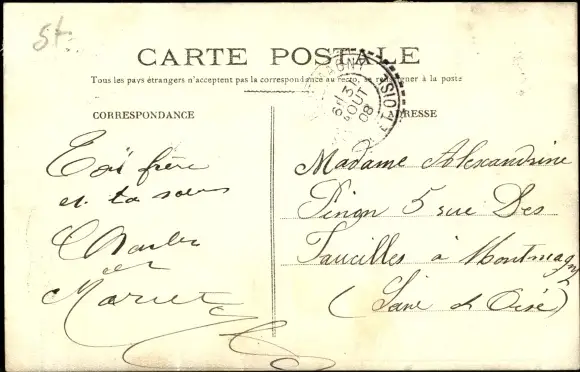 St
CARTE POSTALE
Tous les pays étrangers n'acceptent pas la correspondance au recto, se renseigner à la poste
CORRESPONDANCE
ADRESSE
MAGNY
6 13
AOUT
08
ton frère
et ta sœur
Charles
et
Madame Alexandrine
Pinon 5 rue Des
Faucilles à Montmagny
(Seine et Oise)